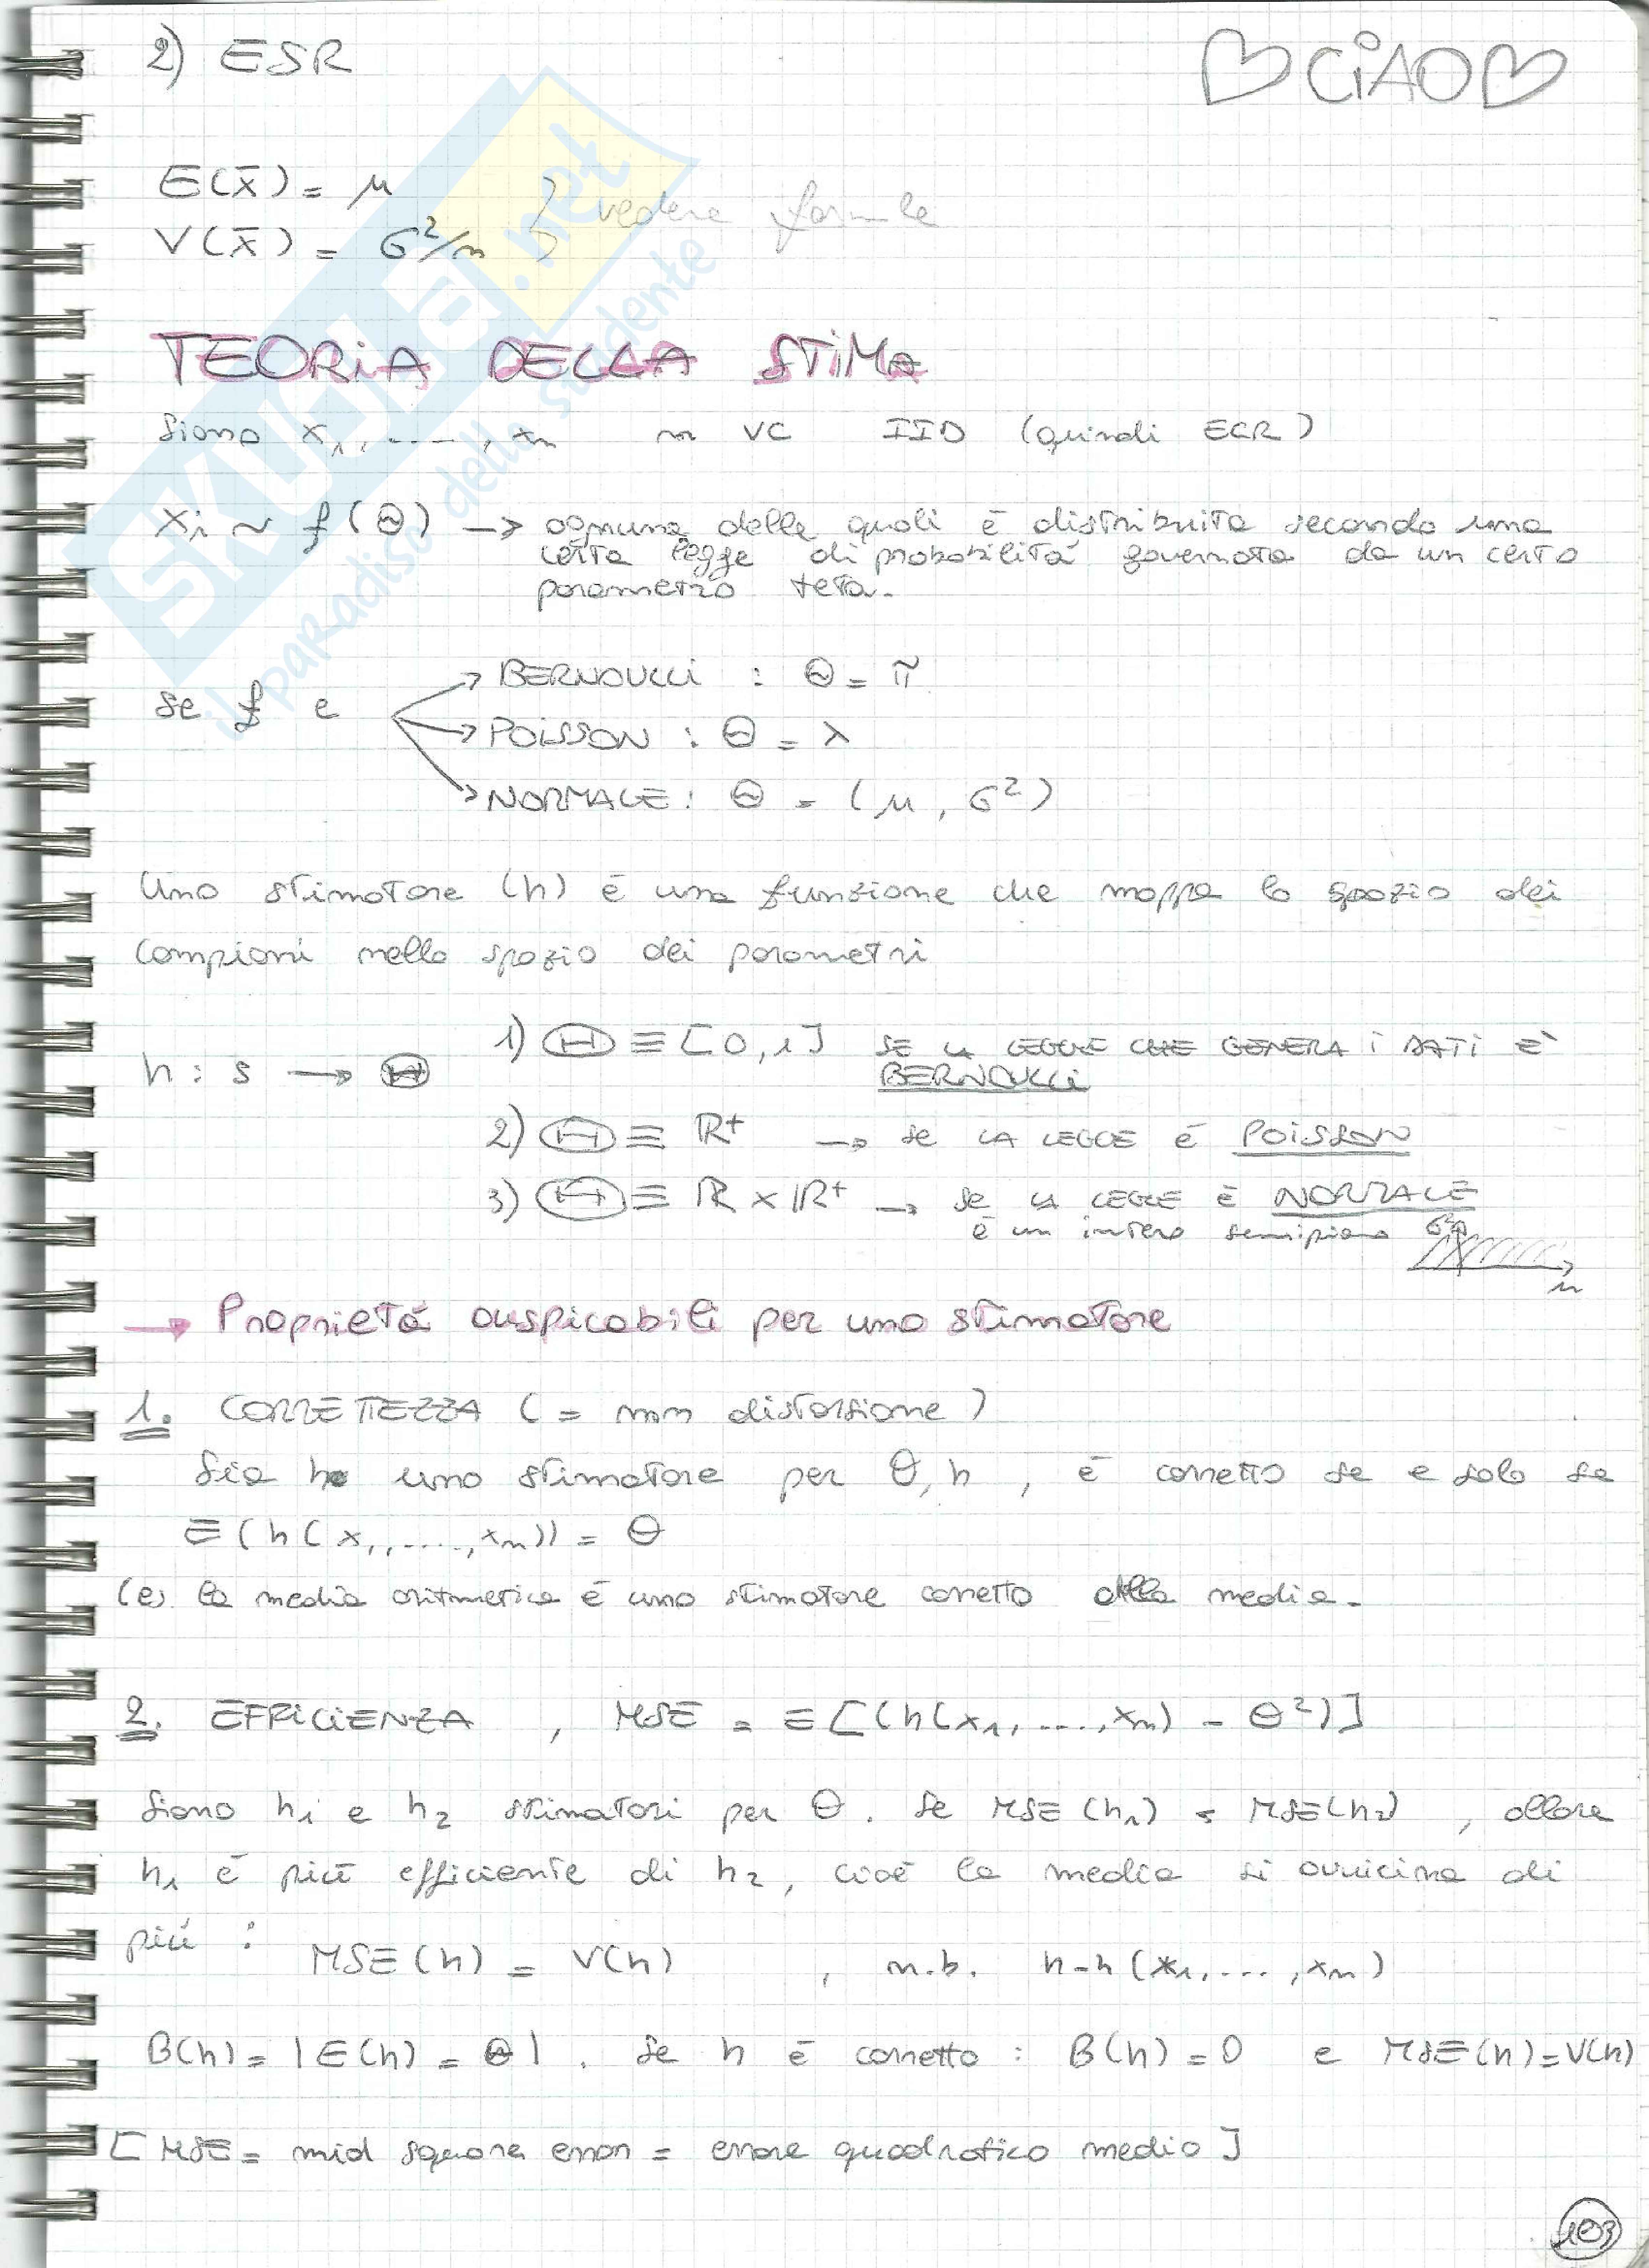 2) ESR
♡CiAO♡
E(x̄) = μ
V(x̄) = σ²/n } vedere formule
TEORiA DELLA STiMA
Siano x₁, ...., xₙ n VC IID (quindi ECR)
xi ~ f(Θ) → ognuna delle quali è distribuita secondo una
certa legge di probabilità governata da un certo
parametro teta.
se f e
→ BERNOULLi : Θ = π
→ POiSSON : Θ = λ
→ NORMALE : Θ = (μ, σ²)
Uno stimatore (h) è una funzione che mappa lo spazio dei
campioni nello spazio dei parametri
h : s → Θ
1) Θ ≡ [0,1] SE LA LEGGE CHE GENERA i DATi E'
BERNOULLi
2) Θ ≡ ℝ⁺ → se LA LEGGE è POiSSON
3) Θ ≡ ℝ x ℝ⁺ → se LA LEGGE è NORMALE
è un intero semipiano σ²
μ
→ Proprietà auspicabili per uno stimatore
1. CORRETTEZZA ( = non distorsione )
Sia h uno stimatore per θ, h , è corretto se e solo se
E(h(x₁,....,xₙ)) = θ
(es. la media aritmetica è uno stimatore corretto della media.
2. EFFiCiENZA , MSE = E[(h(x₁,....,xₙ) - θ²)]
Siano h₁ e h₂ stimatori per θ. Se MSE(h₁) < MSE(h₂) , allora
h₁ è più efficiente di h₂, cioè la media si avvicina di
più :
MSE(h) = V(h) , n.b. h=h(x₁,...,xₙ)
B(h) = |E(h) = θ| . Se h è corretto : B(h) = 0 e MSE(h)=V(h)
[MSE = mid square error = errore quadratico medio]
103
SKUOLA.net
il paradiso dello studente